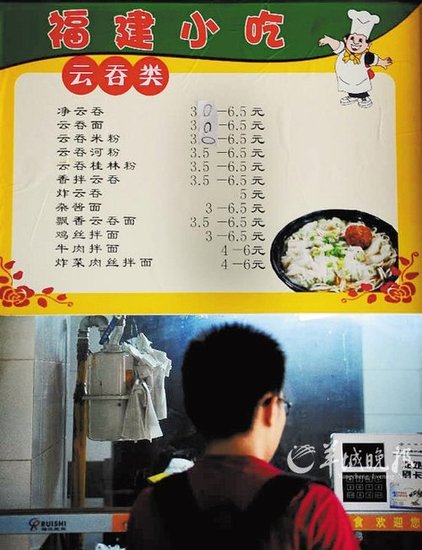 福建小吃
云吞类
净云吞 3.0－6.5元
云吞面 3.0－6.5元
云吞米粉 3.0－6.5元
云吞河粉 3.5－6.5元
云吞桂林粉 3.5－6.5元
香拌云吞 3.5－6.5元
炸云吞 5元
杂酱面 3－6.5元
飘香云吞面 3.5－6.5元
鸡丝拌面 3－6.5元
牛肉拌面 4－6元
炸菜肉丝拌面 4－6元
羊城晚报
刷卡
RUISHI
食 欢迎您